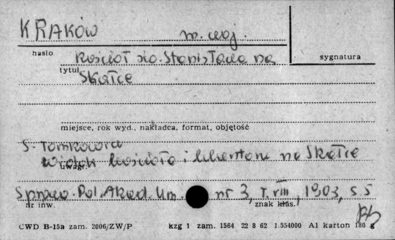 KRAKÓW m. woj.
hasło
kościół św. Stanisława na
tytuł
Skałce
sygnatura
miejsce, rok wyd., nakładca, format, objętość
S. Tomkowicz
Widok kościoła i klasztoru na Skałce
uwagi
Spraw. Pol. Akad. Um. nr 3, T. VIII, 1903, s. 5
nr inw.
znak klas.
CWD B-15a zam. 2006/ZW/P kzg 1 zam. 1564 22 8 62 1.554000 A1 karton 180 g